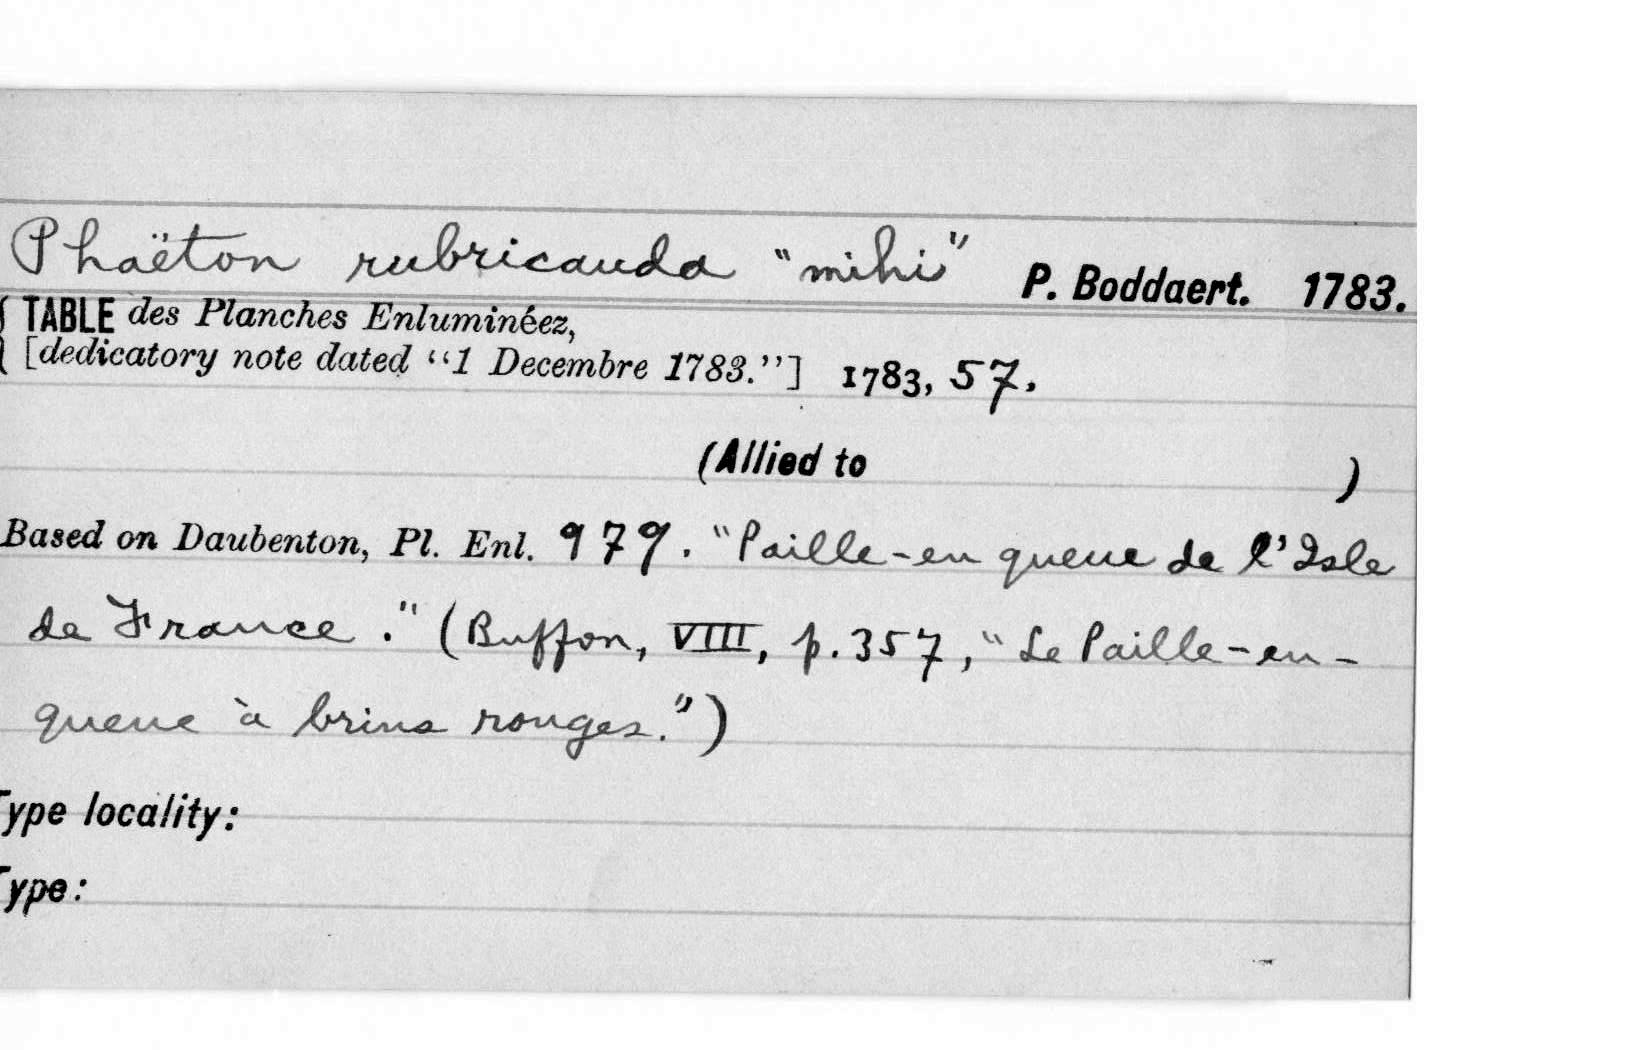 Phaëton rubricauda "mihi" P. Boddaert. 1783.
TABLE des Planches Enluminéez,
[dedicatory note dated "1 Decembre 1783."] 1783, 57.
(Allied to )
Based on Daubenton, Pl. Enl. 979. "Paille-en queue de l'Isle
de France." (Buffon, VIII, p. 357, "Le Paille-en-
queue à brins rouges.")
Type locality:
Type: